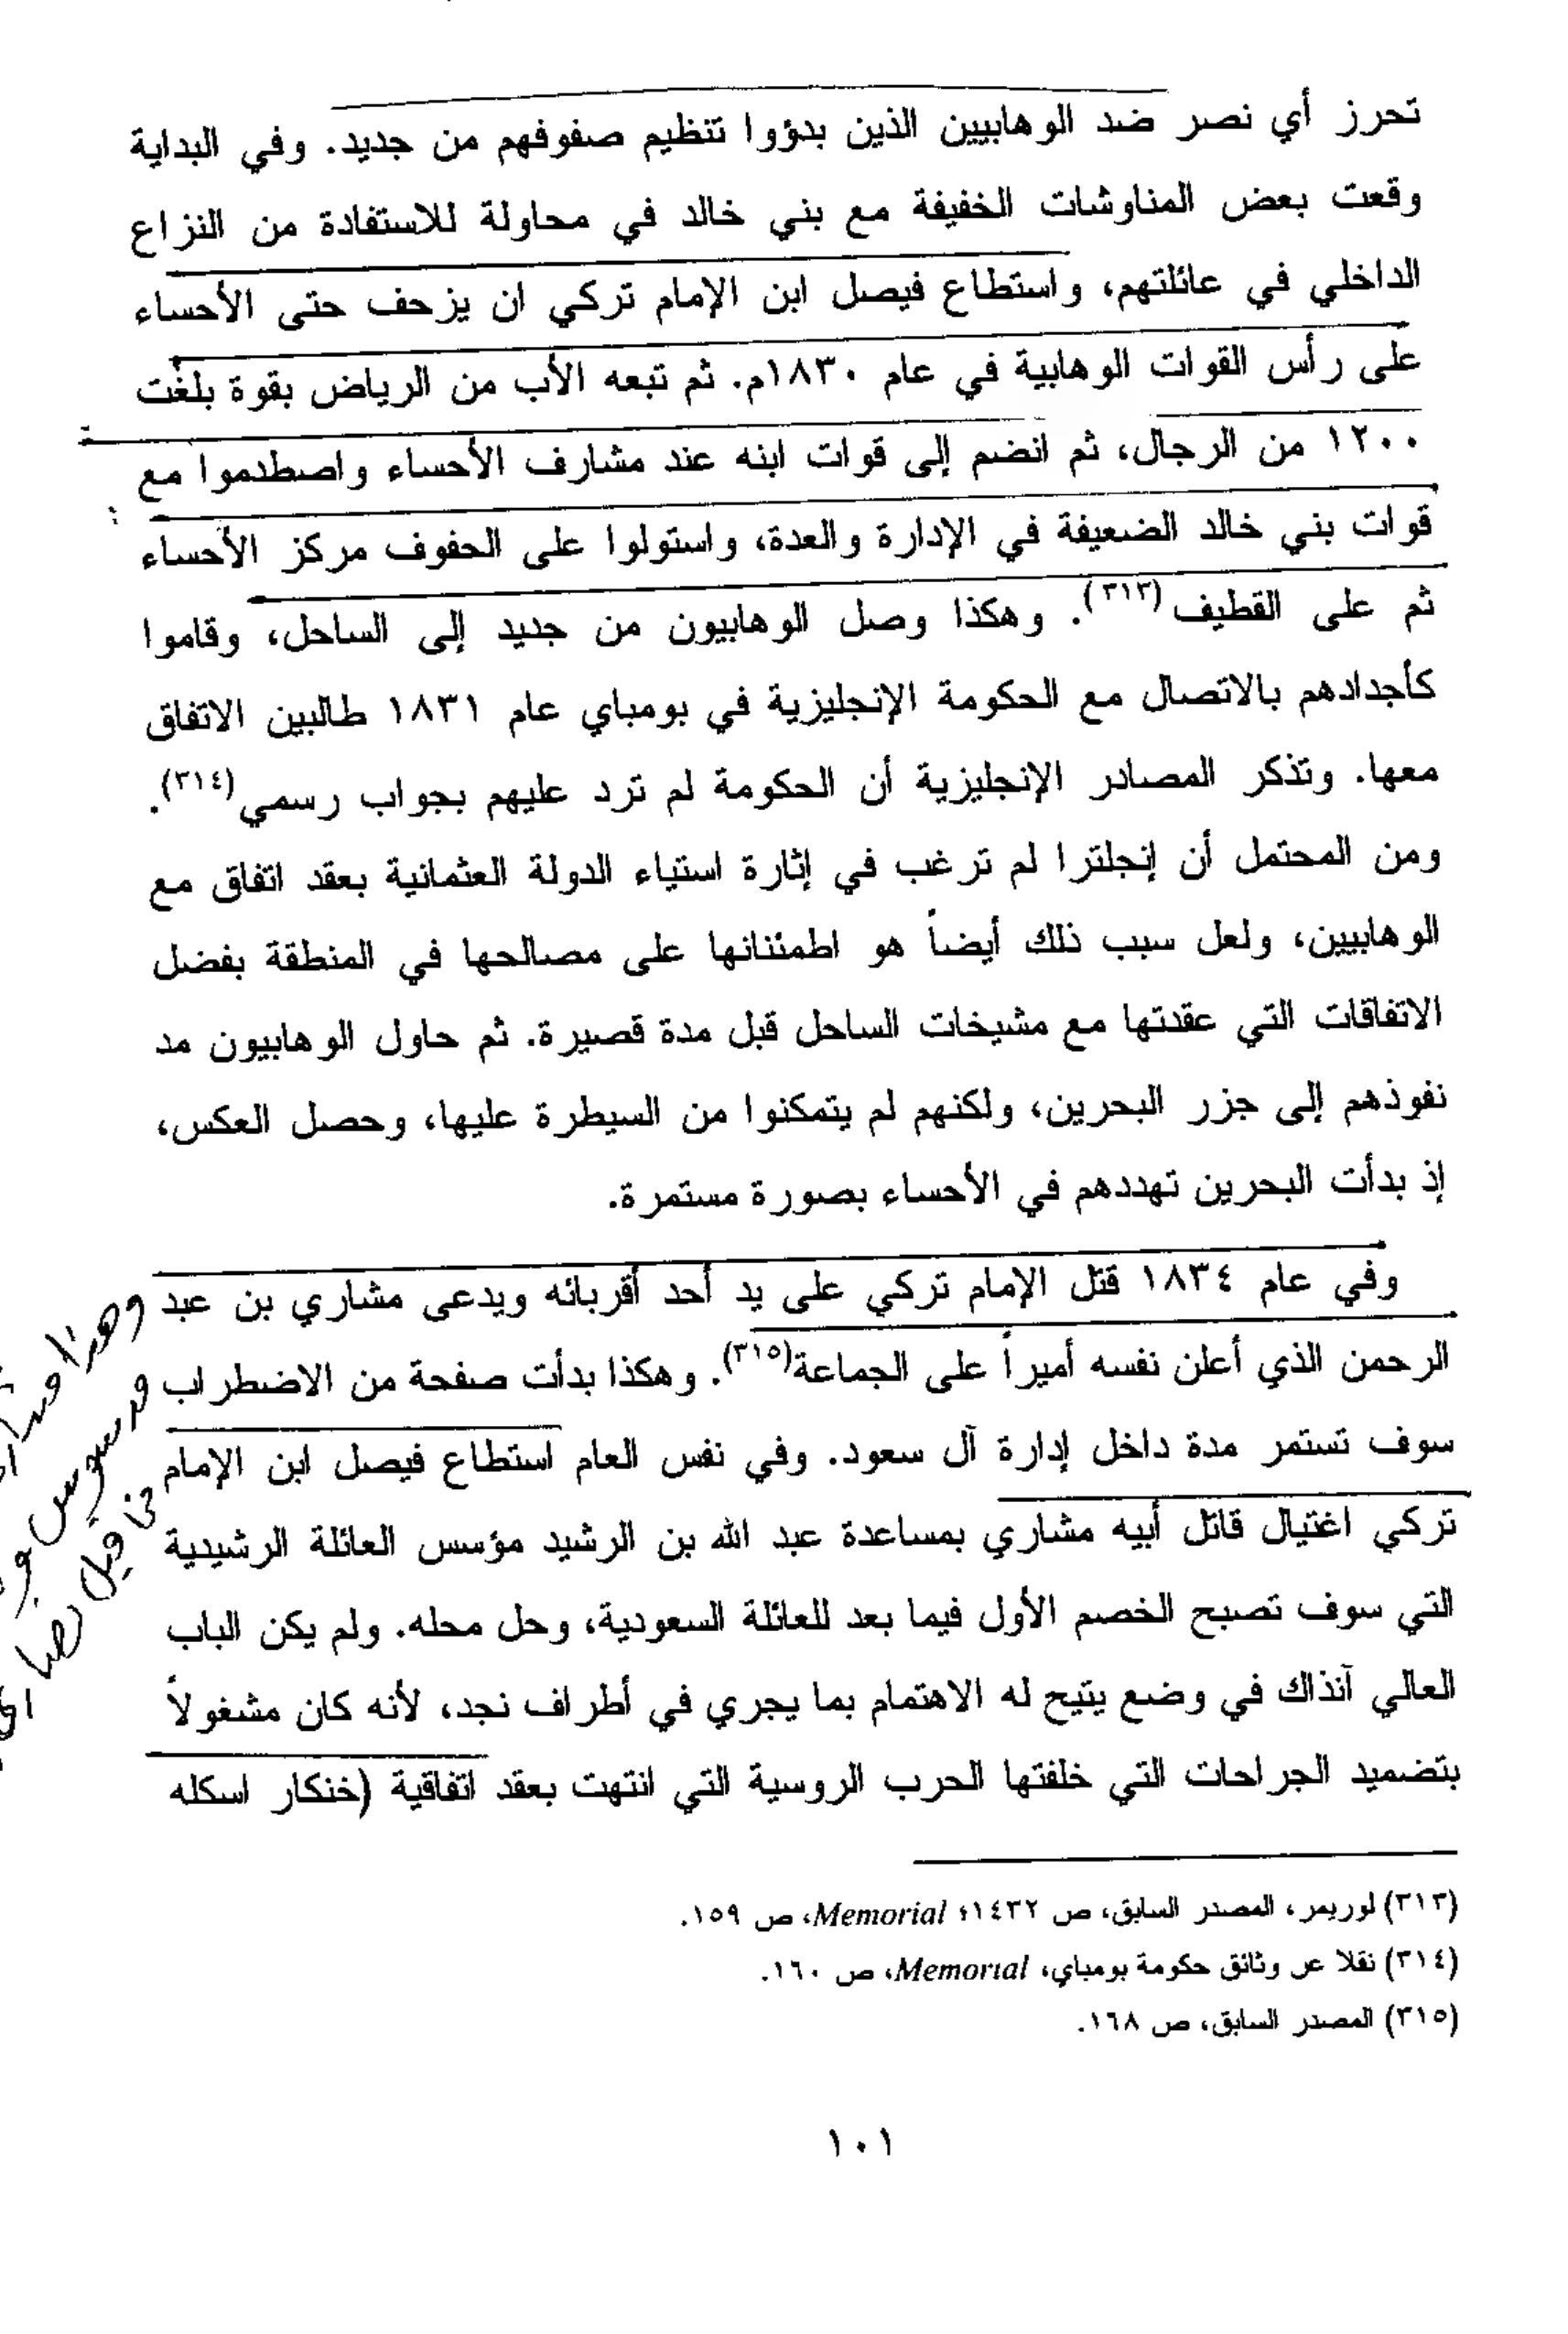 تحرز أي نصر ضد الوهابيين الذين بدؤوا تنظيم صفوفهم من جديد. وفي البداية
وقعت بعض المناوشات الخفيفة مع بني خالد في محاولة للاستفادة من النزاع
الداخلي في عائلتهم، واستطاع فيصل ابن الإمام تركي ان يزحف حتى الأحساء
على رأس القوات الوهابية في عام ١٨٣٠م. ثم تبعه الأب من الرياض بقوة بلغت
١٢٠٠ من الرجال، ثم انضم إلى قوات ابنه عند مشارف الأحساء واصطدموا مع
قوات بني خالد الضعيفة في الإدارة والعدة، واستولوا على الحفوف مركز الأحساء
ثم على القطيف(٣١٣). وهكذا وصل الوهابيون من جديد إلى الساحل، وقاموا
كأجدادهم بالاتصال مع الحكومة الإنجليزية في بومباي عام ١٨٣١ طالبين الاتفاق
معها. وتذكر المصادر الإنجليزية أن الحكومة لم ترد عليهم بجواب رسمي(٣١٤).
ومن المحتمل أن إنجلترا لم ترغب في إثارة استياء الدولة العثمانية بعقد اتفاق مع
الوهابيين، ولعل سبب ذلك أيضاً هو اطمئنانها على مصالحها في المنطقة بفضل
الاتفاقات التي عقدتها مع مشيخات الساحل قبل مدة قصيرة. ثم حاول الوهابيون مد
نفوذهم إلى جزر البحرين، ولكنهم لم يتمكنوا من السيطرة عليها، وحصل العكس،
إذ بدأت البحرين تهددهم في الأحساء بصورة مستمرة.
وفي عام ١٨٣٤ قتل الإمام تركي على يد أحد أقربائه ويدعى مشاري بن عبد
الرحمن الذي أعلن نفسه أميراً على الجماعة(٣١٥). وهكذا بدأت صفحة من الاضطراب
سوف تستمر مدة داخل إدارة آل سعود. وفي نفس العام استطاع فيصل ابن الإمام
تركي اغتيال قاتل أبيه مشاري بمساعدة عبد الله بن الرشيد مؤسس العائلة الرشيدية
التي سوف تصبح الخصم الأول فيما بعد للعائلة السعودية، وحل محله. ولم يكن الباب
العالي آنذاك في وضع يتيح له الاهتمام بما يجري في أطراف نجد، لأنه كان مشغولاً
بتضميد الجراحات التي خلفتها الحرب الروسية التي انتهت بعقد اتفاقية (خنكار اسكله
(٣١٣) لوريمر، المصدر السابق، ص ١٤٣٢؛ Memorial، ص ١٥٩.
(٣١٤) نقلا عن وثائق حكومة بومباي، Memorial، ص ١٦٠.
(٣١٥) المصدر السابق، ص ١٦٨.
١٠١